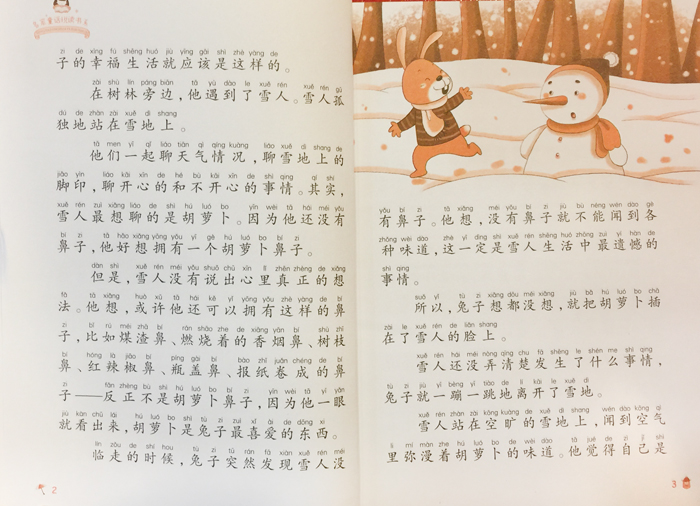 zi de xìng fú shēng huó jiù yīng gāi shì zhè yàng de
子的幸福生活就应该是这样的。
zài shù lín páng biān tā yù dào le xuě rén xuě rén gū
在树林旁边，他遇到了雪人。雪人孤
dú de zhàn zài xuě dì shang
独地站在雪地上。
tā men yì qǐ liáo tiān qì qíng kuàng liáo xuě dì shang de
他们一起聊天气情况，聊雪地上的
jiǎo yìn liáo kāi xīn de hé bù kāi xīn de shì qing qí shí
脚印，聊开心的和不开心的事情。其实，
xuě rén zuì xiǎng liáo de shì hú luó bo yīn wèi tā hái méi yǒu
雪人最想聊的是胡萝卜。因为他还没有
bí zi tā hǎo xiǎng yōng yǒu yí gè hú luó bo bí zi
鼻子，他好想拥有一个胡萝卜鼻子。
dàn shì xuě rén méi yǒu shuō chū xīn lǐ zhēn zhèng de xiǎng
但是，雪人没有说出心里真正的想
fǎ tā xiǎng huò xǔ tā hái kě yǐ yōng yǒu zhè yàng de bí
法。他想，或许他还可以拥有这样的鼻
zi bǐ rú méi zhā bí rán shāo zhe de xiāng yān bí shù zhī
子，比如煤渣鼻、燃烧着的香烟鼻、树枝
bí hóng là jiāo bí píng gài bí bào zhǐ juǎn chéng de bí
鼻、红辣椒鼻、瓶盖鼻、报纸卷成的鼻
zi fǎn zhèng bú shì hú luó bo bí zi yīn wèi tā yì yǎn
子——反正不是胡萝卜鼻子，因为他一眼
jiù kàn chū lái hú luó bo shì tù zi zuì xǐ ài de dōng xi
就看出来，胡萝卜是兔子最喜爱的东西。
lín zǒu de shí hou tù zi tū rán fā xiàn xuě rén méi
临走的时候，兔子突然发现雪人没
2
yǒu bí zi tā xiǎng méi yǒu bí zi jiù bù néng wén dào gè
有鼻子。他想，没有鼻子就不能闻到各
zhǒng wèi dào zhè yí dìng shì xuě rén shēng huó zhōng zuì yí hàn de
种味道，这一定是雪人生活中最遗憾的
shì qing
事情。
suǒ yǐ tù zi xiǎng dōu méi xiǎng jiù bǎ hú luó bo chā
所以，兔子想都没想，就把胡萝卜插
zài le xuě rén de liǎn shang
在了雪人的脸上。
xuě rén hái méi nòng qīng chu fā shēng le shén me shì qing
雪人还没弄清楚发生了什么事情，
tù zi jiù yí bèng yí tiào de lí kāi le xuě dì
兔子就一蹦一跳地离开了雪地。
xuě rén zhàn zài kōng kuàng de xuě dì shang wén dào kōng qì
雪人站在空旷的雪地上，闻到空气
lǐ mí màn zhe hú luó bo de wèi dào tā jué de zì jǐ shì
里弥漫着胡萝卜的味道。他觉得自己是
3